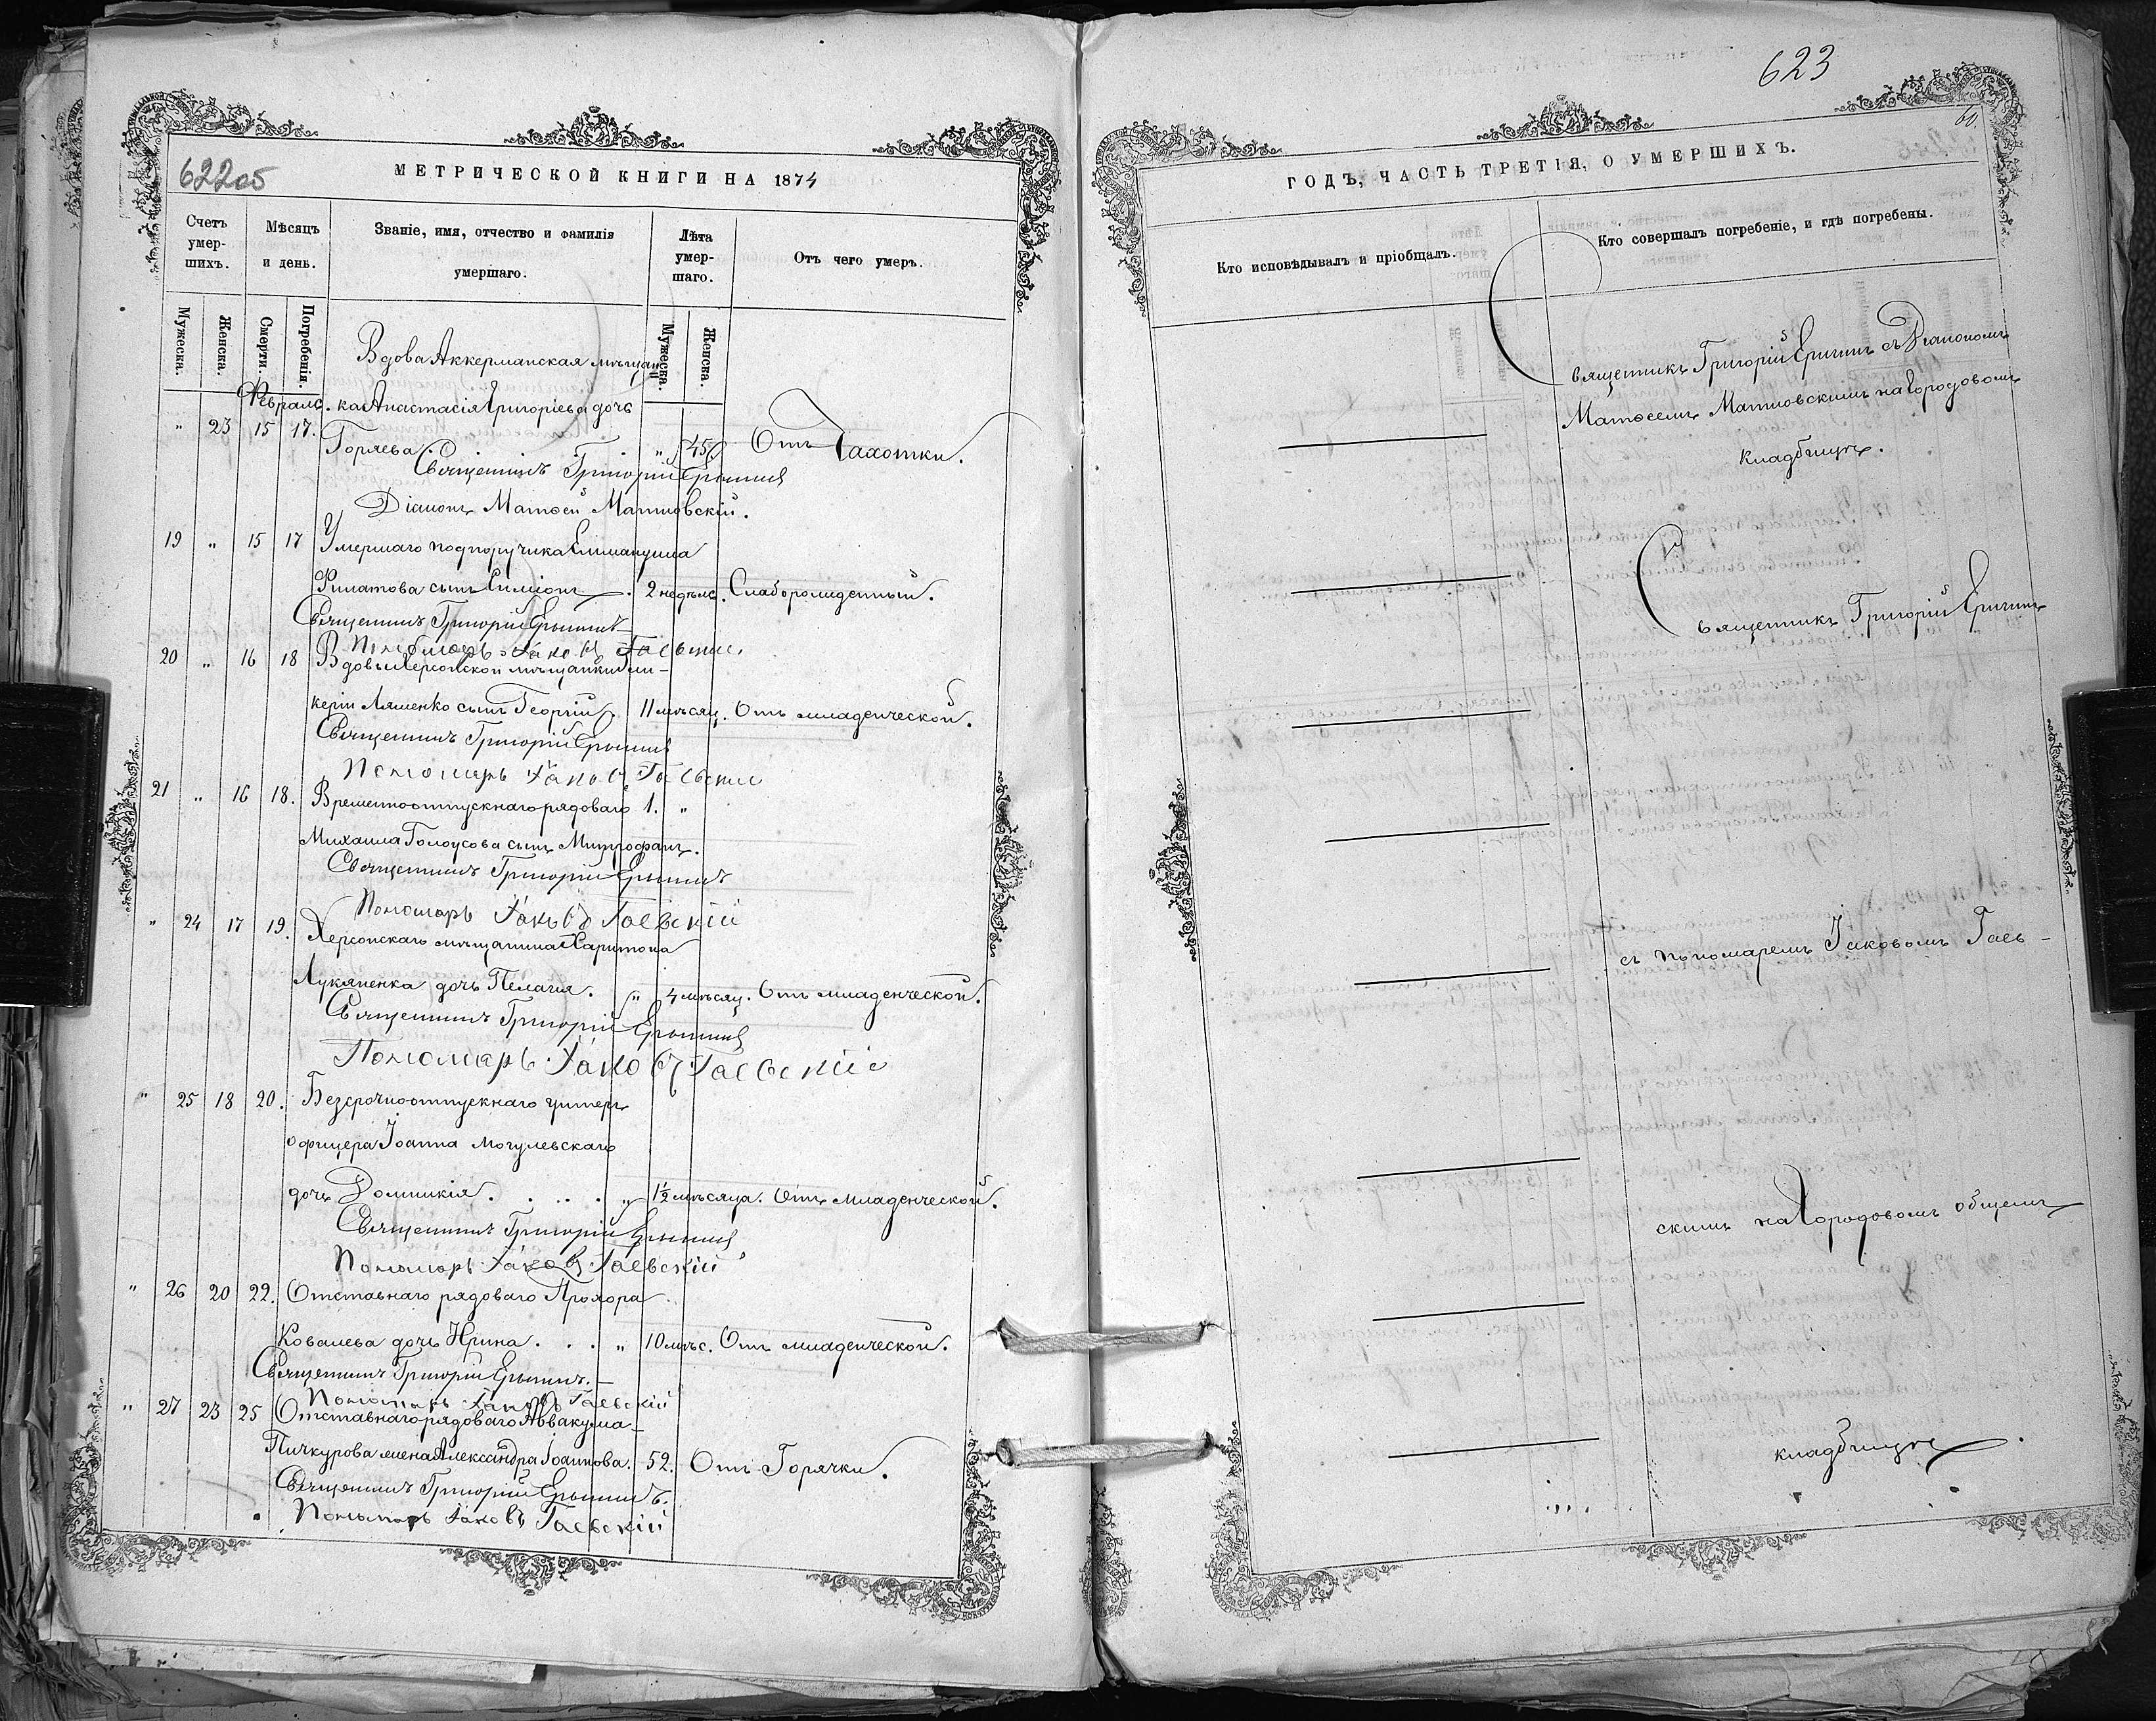 622 об
МЕТРИЧЕСКОЙ КНИГИ НА 1874
Счетъ умер-шихъ.
Мѣсяцъ и день.
Званіе, имя, отчество и фамилія умершаго.
Лѣта умер-шаго.
Отъ чего умеръ.
Мужеска.
Женска.
Смерти.
Погребенія.
Мужеска.
Женска.
Вдова Аккерманская мѣщан
Февраль. ка Анастасія Григоріева дочь
" 23 15 17. Горяева. " 45 Отъ Чахотки.
Священникъ Григорій
Діаконъ Матѳей Матковскій.
19 " 15 17 Умершаго подпоручика
Филатова сынъ Симеонъ. 2 недѣль. Слаборожденный.
Священникъ Григорій
Пономарь Іаковъ Гаевскій
20 " 16 18 Вдовы Херсонской мѣщанки Гли-
керіи Ляшенко сынъ Георгій. 11 мѣсяц. Отъ младенческой.
Священникъ Григорій
Пономарь Іаковъ Гаевскій
21 " 16 18. Временноотпускнаго рядоваго 1. "
Михаила Голоусова сынъ Митрофанъ.
Священникъ Григорій
Пономарь Іаковъ Гаевскій
" 24 17 19. Херсонскаго мѣщанина Харитона
Лукяненка дочь Пелагия. " 4 мѣсяц. Отъ младенческой.
Священникъ Григорій
Пономарь Іаковъ Гаевскій
" 25 18 20. Безсрочноотпускнаго унтеръ
офицера Іоанна Могулевскаго
дочь Домникія. . . . . " 1½ мѣсяца. Отъ младенческой.
Священникъ Григорій
Пономарь Іаковъ Гаевскій
" 26 20 22. Отставнаго рядоваго Прохора
Ковалева дочь Ирина. . . . " 10 мѣс. Отъ младенческой.
Священникъ Григорій
Пономарь Іаковъ Гаевскій
" 27 23 25 Отставнаго рядоваго Аввакума
Пичкурова жена Александра Іоаннова. 52. Отъ Горячки.
Священникъ Григорій
Пономарь Іаковъ Гаевскій
623
60.
ГОДЪ, ЧАСТЬ ТРЕТІЯ, О УМЕРШИХЪ.
Кто исповѣдывалъ и пріобщалъ.
Кто совершалъ погребеніе, и гдѣ погребены.
Священникъ Григорій съ Діакономъ
Матѳеемъ Матковскимъ на Городовомъ
кладбищѣ.
Священникъ Григорій
съ пономаремъ Іаковомъ Гаев-
скимъ на Городовомъ общемъ
кладбищѣ.